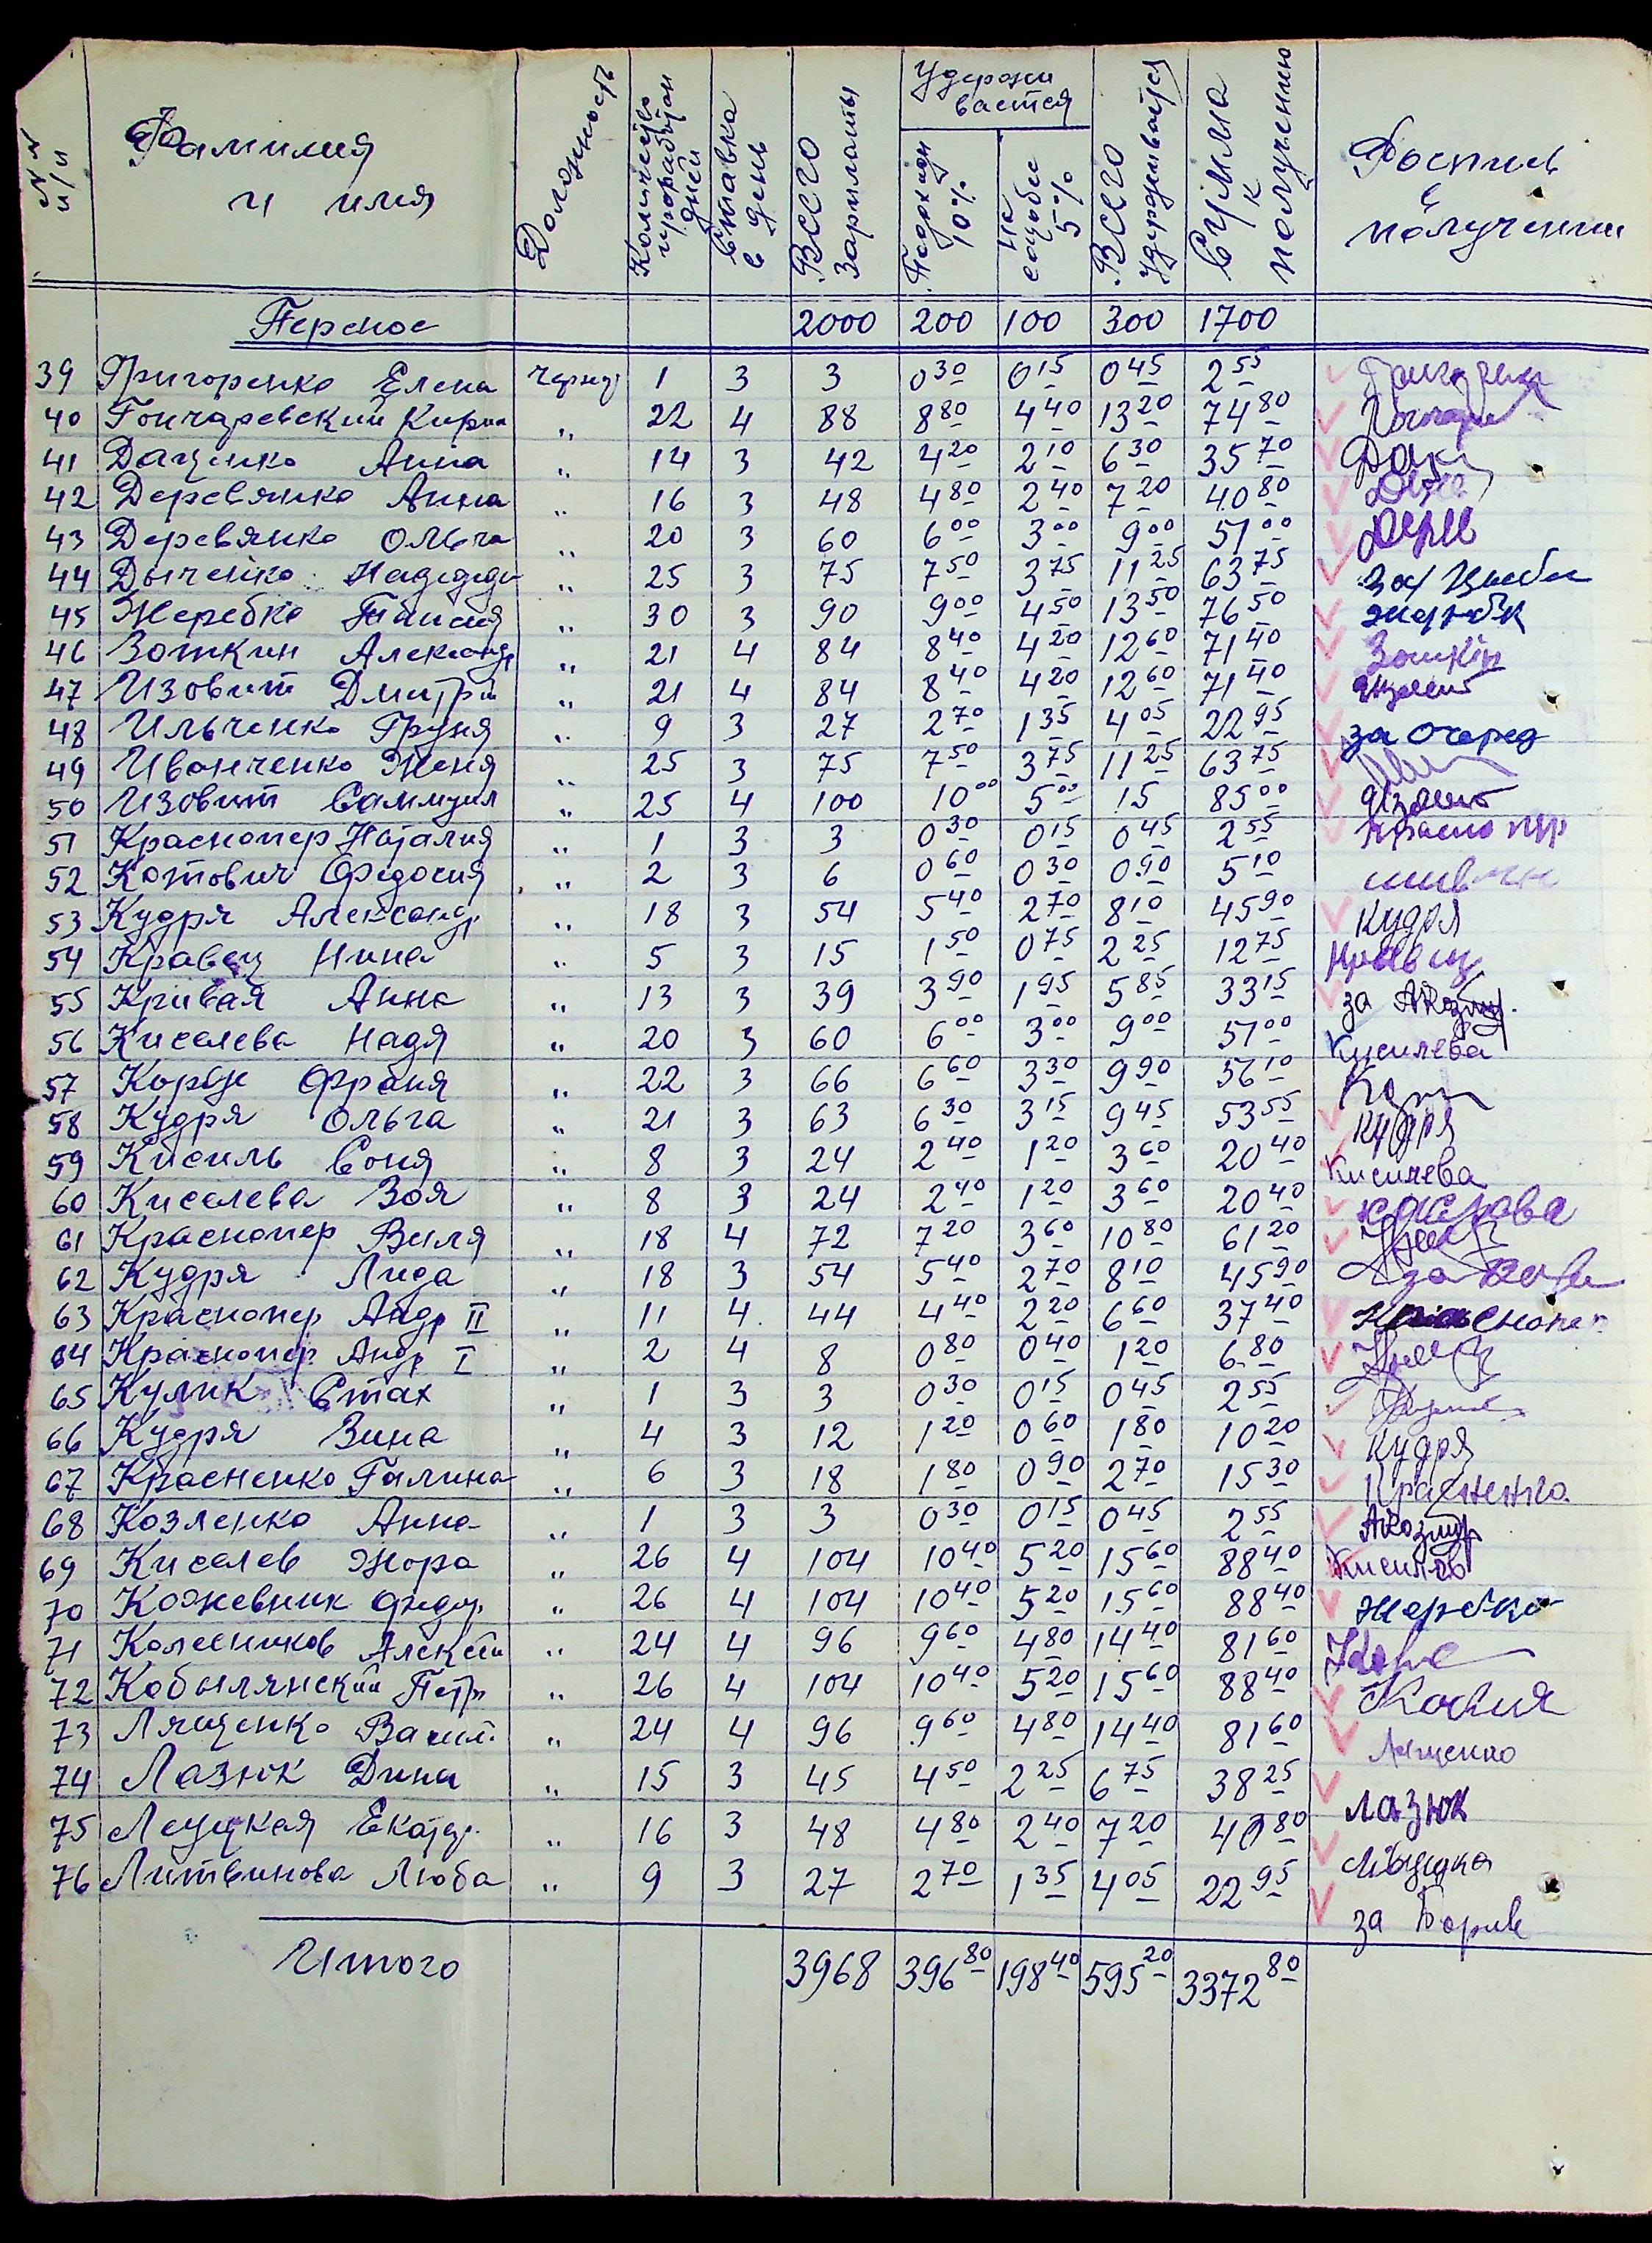 №№ п/п Фамилия и имя Должность Количество проработан дней Ставка в день Всего зарплаты Удерживается Подоходн 10% На соцобес 5% Всего удерживается Сумма к получению Роспись в получении
Перенос 2000 200 100 300 1700
39 Григоренко Елена черн 1 3 3 0 30 0 15 0 45 2 55
40 Гончаревский Кирил " 22 4 88 8 80 4 40 13 20 74 80
41 Даценко Анна " 14 3 42 4 20 2 10 6 30 35 70
42 Деревянко Анна " 16 3 48 4 80 2 40 7 20 40 80
43 Деревянко Ольга " 20 3 60 6 00 3 00 9 00 51 00
44 Дыченко Надежда " 25 3 75 7 50 3 75 11 25 63 75
45 Жеребко Таисия " 30 3 90 9 00 4 50 13 50 76 50
46 Зоткин Александ " 21 4 84 8 40 4 20 12 60 71 40 Зоткін
47 Изовит Дмитрий " 21 4 84 8 40 4 20 12 60 71 40
48 Ильченко Груня " 9 3 27 2 70 1 35 4 05 22 95 за Очеред
49 Иванченко Женя " 25 3 75 7 50 3 75 11 25 63 75
50 Изовит Саммуил " 25 4 100 10 00 5 00 15 85 00
51 Краснопер Наталия " 1 3 3 0 30 0 15 0 45 2 55 Краснопер
52 Котович Федосия " 2 3 6 0 60 0 30 0.90 5 10
53 Кудря Александ. " 18 3 54 5 40 2 70 8 10 45 90 Кудря
54 Кравец Нина " 5 3 15 1 50 0 75 2 25 12 75 Кравец
55 Кривая Анна " 13 3 39 3 90 1 95 5 85 33 15 за
56 Киселева Надя " 20 3 60 6 00 3 00 9 00 51 00 Кисилева
57 Корж Франя " 22 3 66 6 60 3 30 9 90 56 10
58 Кудря Ольга " 21 3 63 6 30 3 15 9 45 53 55 Кудря
59 Кисиль Соня " 8 3 24 2 40 1 20 3 60 20 40 Кисилева
60 Киселева Зоя " 8 3 24 2 40 1 20 3 60 20 40
61 Краснопер Виля " 18 4 72 7 20 3 60 10 80 61 20
62 Кудря Лида " 18 3 54 5 40 2 70 8 10 45 90 за
63 Краснопер Андр II " 11 4 44 4 40 2 20 6 60 37 40 Краснопер
64 Краснопер Андр I " 2 4 8 0 80 0 40 1 20 6 80
65 Кулик Стах " 1 3 3 0 30 0 15 0 45 2 55
66 Кудря Зина " 4 3 12 1 20 0 60 1 80 10 20 Кудря
67 Красненко Галина " 6 3 18 1 80 0 90 2 70 15 30 Красненко
68 Козленко Анна " 1 3 3 0 30 0 15 0 45 2 55
69 Киселев Жора " 26 4 104 10 40 5 20 15 60 88 40 Кисилев
70 Кожевник Федор. " 26 4 104 10 40 5 20 15 60 88 40 Жеребко
71 Колесников Алексей " 24 4 96 9 60 4 80 14 40 81 60
72 Кобылянский Петр " 26 4 104 10 40 5 20 15 60 88 40
73 Лященко Васил. " 24 4 96 9 60 4 80 14 40 81 60 Лященко
74 Лазюк Дина " 15 3 45 4 50 2 25 6 75 38 25 Лазюк
75 Луцкая Екатер. " 16 3 48 4 80 2 40 7 20 40 80
76 Литвинова Люба " 9 3 27 2 70 1 35 4 05 22 95 за
Итого 3968 396 80 198 40 595 20 3372 80